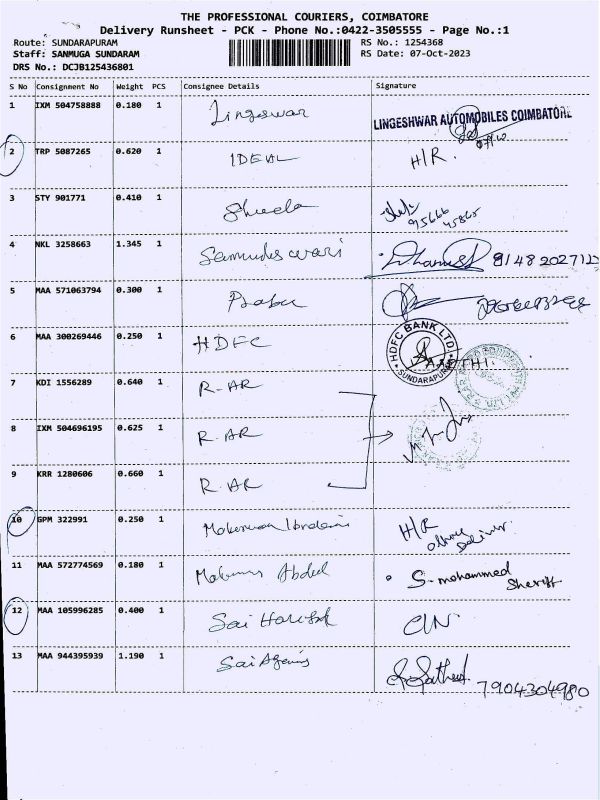 THE PROFESSIONAL COURIERS, COIMBATORE
Delivery Runsheet - PCK - Phone No.:0422-3505555 - Page No.:1
Route: SUNDARAPURAM RS No.: 1254368
Staff: SANMUGA SUNDARAM RS Date: 07-Oct-2023
DRS No.: DCJB125436801
S No Consignment No Weight PCS Consignee Details Signature
1 IXM 504758888 0.180 1 Lingeswar LINGESHWAR AUTOMOBILES COIMBATORE
2 TRP 5087265 0.620 1 IDEAL H/R.
3 STY 901771 0.410 1 Sheela 95666
45865
4 NKL 3258663 1.345 1 Samudeswari Dhanush 8148202712
5 MAA 571063794 0.300 1 Prabu
6 MAA 300269446 0.250 1 HDFC HDFC BANK LTD. SUNDARAPURAM AARTHI.
7 KDI 1556289 0.640 1 R-AR
8 IXM 504696195 0.625 1 R.AR
9 KRR 1280606 0.660 1 R.AR
10 GPM 322991 0.250 1 H/R
11 MAA 572774569 0.180 1 Abdul S-mohammed
Sheriff
12 MAA 105996285 0.400 1 Sai
13 MAA 944395939 1.190 1 Sai 7904304980